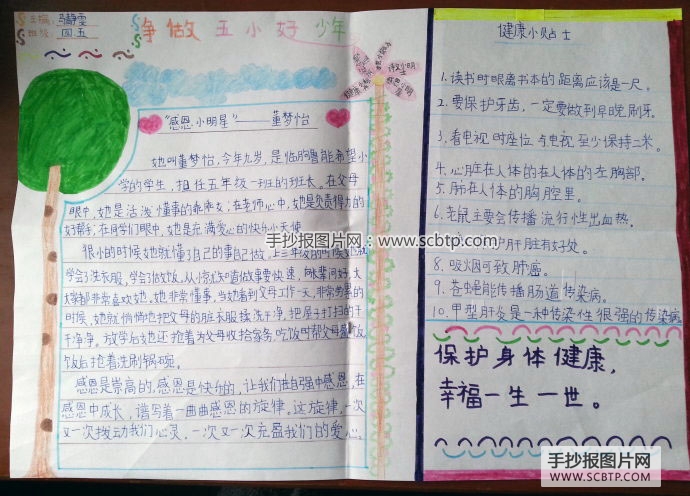 主编:马静雯
班级:四、五
争做五小好少年
"感恩小明星"——董梦怡
她叫董梦怡,今年九岁,是临朐暑能希望小
学的学生,担任五年级一班的班长。在父母
眼中,她是活泼懂事的乖乖女;在老师心中,她是负责得力的
好帮手;在同学们眼中,她是充满爱心的快乐小天使。
很小的时候她就懂了自己的事自己做,上三年级的时候她就
学会了洗衣服,学会了做饭,做事要快速,
大家都非常喜欢她,她非常懂事,当她看到父母工作一天,非常劳累的
时候,她就悄悄地把父母的脏衣服揉洗干净,把屋子打扫的干
干净净,放学后她还抢着为父母收拾家务,吃饭时帮父母盛饭,
饭后抢着洗刷锅碗。
感恩是崇高的,感恩是快乐的,让我们由自强中感恩,在
感恩中成长,谱写着一曲曲感恩的旋律。这旋律,一次
又一次拨动我们心灵,一次又一次充盈我们的爱心。
健康小贴士
1.读书时眼离书本的距离应该是一尺。
2.要保护牙齿,一定要做到早晚刷牙。
3.看电视时座位与电视至少保持二米。
4.心脏在人体的在人体的左胸部。
5.肺在人体的胸腔里。
6.老鼠主要会传播流行性出血热。
肝脏有好处。
8.吸烟可致肺癌。
9.苍蝇能传播肠道传染病。
10.甲型肝炎是一种传染性很强的传染病。
保护身体健康,
幸福一生一世。
手抄报图片网:www.scbtp.com
手抄报图片网
WWW.SCBTP.COM